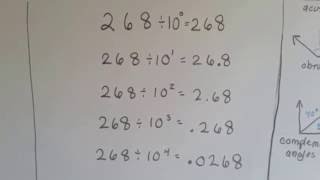 268÷10⁰=268
268÷10¹=26.8
268÷10²=2.68
268÷10³=.268
268÷10⁴=.0268
acu
obtu
40°
complem
angles